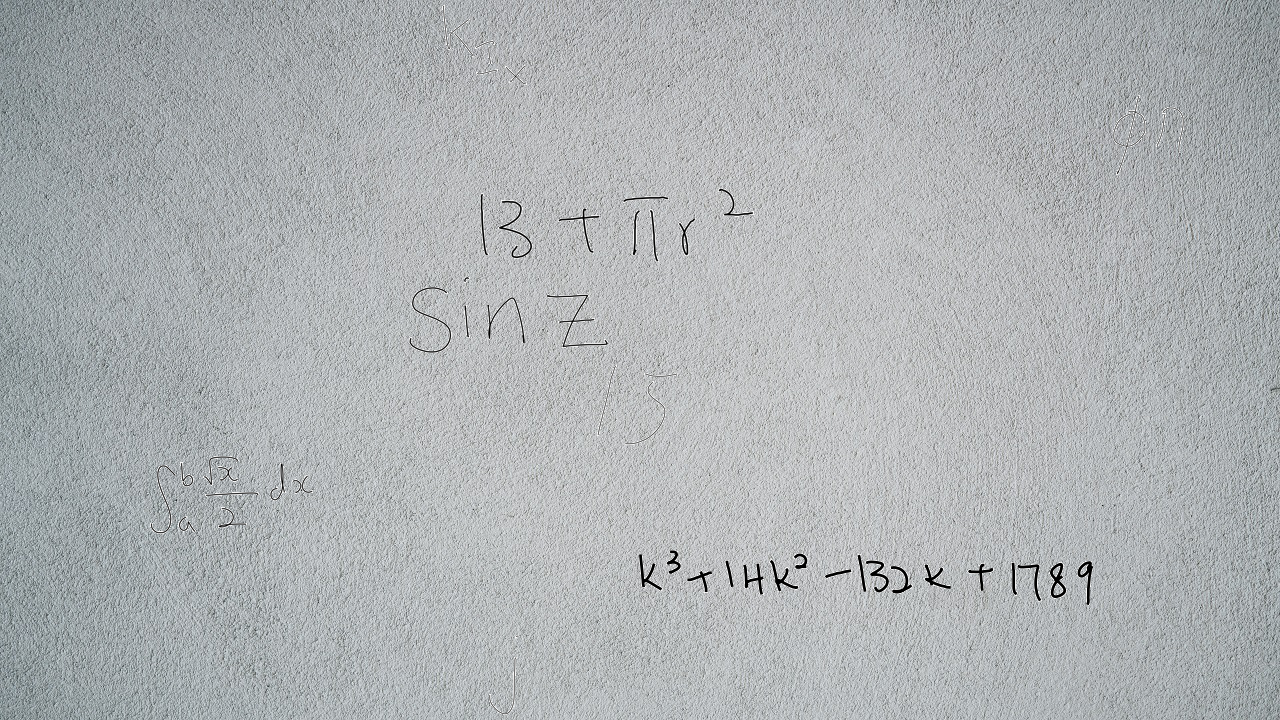 k Σ x
φ n
13 + πr²
sin z
15
∫ₐᵇ √x/2 dx
k³ + 14k² - 132k + 1789
J